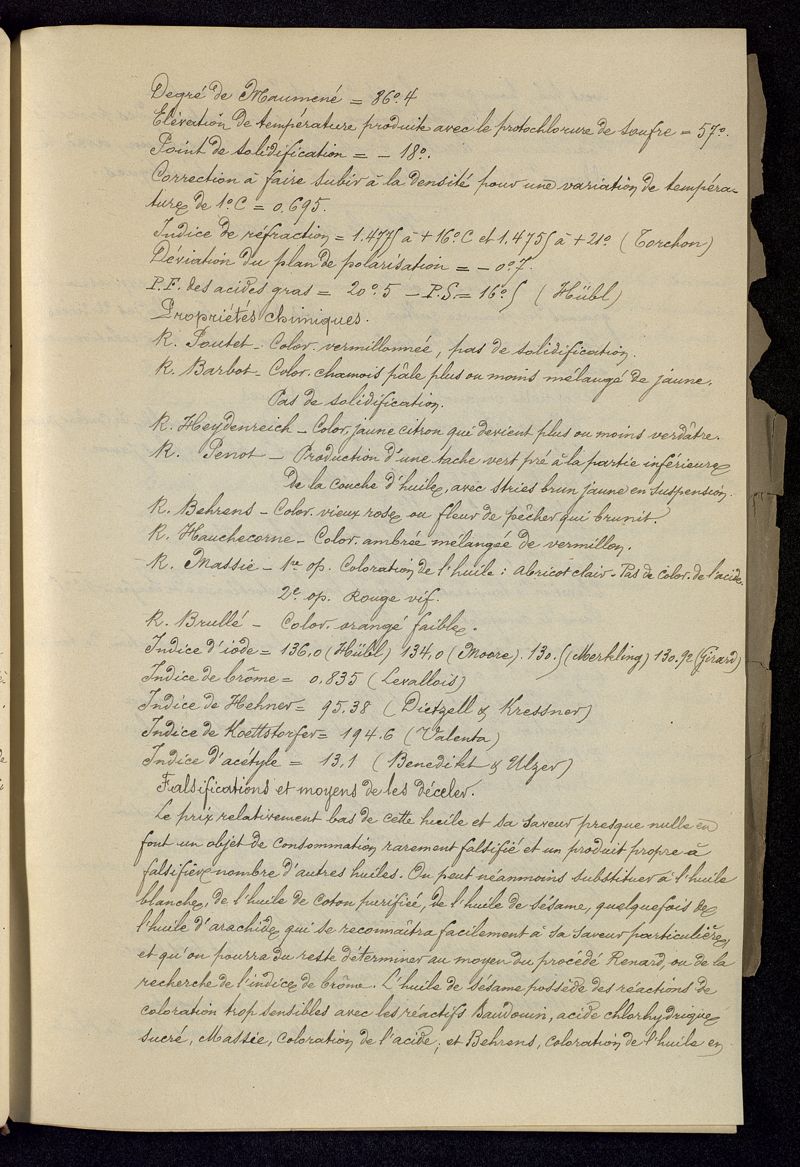 Degré de Maumené = 86°.4
Elévation de température produite avec le protochlorure de soufre = 57°.
Point de solidification = - 18°.
Correction à faire subir à la densité pour une variation de tempéra-
ture de 1° C = 0,695.
Indice de réfraction = 1.4775 à + 16° C et 1.4755 à + 21° (Torchon)
Déviation du plan de polarisation = - 0°.7.
P.F. des acides gras = 20°.5 - P.S. = 16°5 (Hübl)
Propriétés chimiques.
R. Poutet - Color. vermillonnée, pas de solidification.
R. Barbot - Color. chamois pâle plus ou moins mélangé de jaune.
Pas de solidification.
R. Heydenreich - Color. jaune citron qui devient plus ou moins verdâtre.
R. Penot - Production d'une tache vert pré à la partie inférieure
de la couche d'huile, avec stries brun jaune en suspension.
R. Behrens - Color. vieux rose ou fleur de pêcher qui brunit.
R. Hauchecorne - Color. ambrée mélangée de vermillon.
R. Massie - 1re op. Coloration de l'huile : abricot clair. Pas de color. de l'acide.
2e op. Rouge vif.
R. Brullé - Color. orangé faible.
Indice d'iode = 136,0 (Hübl) 134,0 (Moore). 130.5 (Merkling) 130.92 (Girard)
Indice de brôme = 0,835 (Levallois)
Indice de Hehner = 95.38 (Dietzell & Kressner)
Indice de Koettstorfer = 194.6 (Valenta)
Indice d'acétyle = 13,1 (Benedikt & Ulzer)
Falsifications et moyens de les déceler.
Le prix relativement bas de cette huile et sa saveur presque nulle en
font un objet de consommation rarement falsifié et un produit propre à
falsifier nombre d'autres huiles. On peut néanmoins substituer à l'huile
blanche, de l'huile de coton purifiée, de l'huile de sésame, quelquefois de
l'huile d'arachide qui se reconnaîtra facilement à sa saveur particulière,
et qu'on pourra du reste déterminer au moyen du procédé Renard, ou de la
recherche de l'indice de brôme. L'huile de sésame possède des réactions de
coloration trop sensibles avec les réactifs Baudouin, acide chlorhydrique
sucré, Massie, coloration de l'acide, et Behrens, coloration de l'huile en